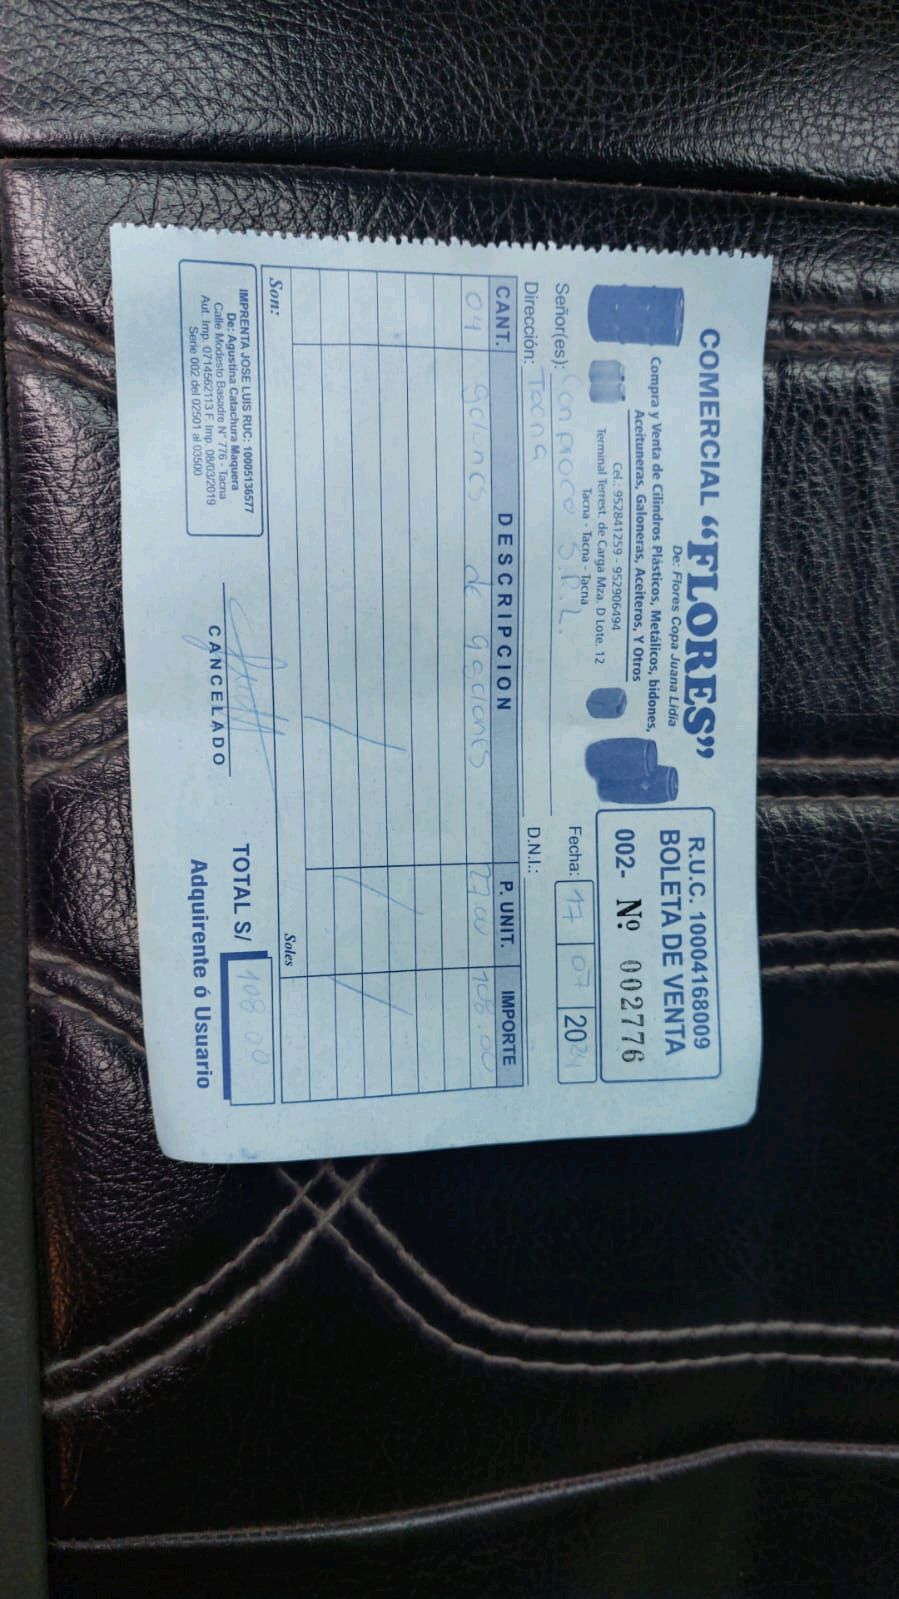 COMERCIAL “FLORES”
De: Flores Copa Juana Lidia
Compra y Venta de Cilindros Plásticos, Metálicos, bidones,
Aceituneras, Galoneras, Aceiteros, Y Otros
Cel.: 952841259 - 952906494
Terminal Terrest. de Carga Mza. D Lote. 12
Tacna - Tacna - Tacna
R.U.C. 10004168009
BOLETA DE VENTA
002- Nº 002776
Fecha: 17 07 2024
Señor(es): Conproco S.R.L.
Dirección: Tacna D.N.I.:
CANT. DESCRIPCION P. UNIT. IMPORTE
04 galones de galones 27.00 108.00
Son: Soles
IMPRENTA JOSE LUIS RUC: 10005136577
De: Agustina Catachura Maquera
Calle Modesto Basadre N° 776 - Tacna
Aut. Imp. 0714562113 F. Imp. 08/03/2019
Serie 002 del 02501 al 03500
CANCELADO
TOTAL S/ 108.00
Adquirente ó Usuario